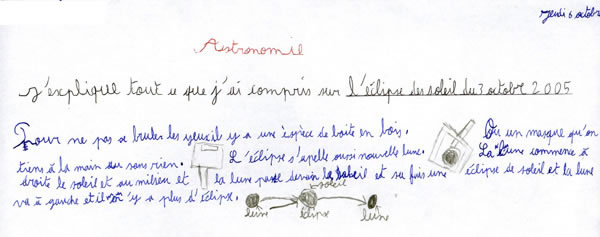 Jeudi 6 octobre
Astronomie
J'explique tout ce que j'ai compris sur l'éclipse de soleil du 3 octobre 2005
Pour ne pas se bruler les yeux il y a une espèce de boite en bois. Ou un masque qu'on
tiens à la main ou sans rien. L'éclipse s'apelle aussi nouvelle lune. La lune commence à
droite le soleil et au milieu et la lune passe devain le soleil et sa fais une éclipse de soleil et la lune
va à gauche et il n'y a plus d'éclipse.
soleil
lune éclipse lune